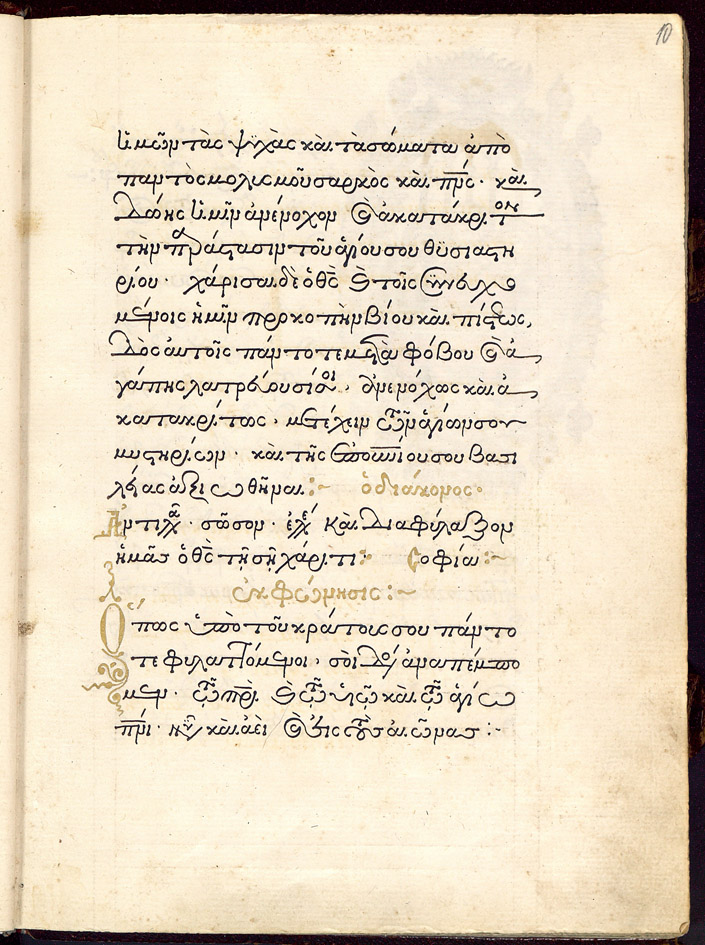 10
ἡμῶν τὰς ψυχὰς καὶ τὰ σώματα ἀπὸ
παντὸς μολυσμοῦ σαρκὸς καὶ πνς · καὶ
δώης ἡμῖν ἀνένοχον καὶ ἀκατάκριτον
τὴν παράστασιν τοῦ ἁγίου σου θυσιαστη
ρίου · χάρισαι δὲ ὁ θς καὶ τοῖς συνευχο
μένοις ἡμῖν προκοπὴν βίου καὶ πίστεως,
δὸς αὐτοῖς πάντοτε μετὰ φόβου καὶ ἀ
γάπης λατρεύουσί σοι, ἀνενόχως καὶ ἀ
κατακρίτως · μετέχειν τῶν ἁγίων σου
μυστηρίων · καὶ τῆς ἐπουνίου σου βασι
λείας ἀξιωθῆναι :~ ὁ διάκονος·
Ἀντιλα · σῶσον · ἐλέ καὶ διαφύλαξον
ἡμᾶς ὁ θς τῇ σῇ χάριτι : Σοφία :~
ἐκφώνησις :~
Ὅπως ὑπὸ τοῦ κράτους σου πάντο
τε φυλαττόμενοι · σοὶ δόξαν ἀναπέμπω
μεν · τῷ πρι · καὶ τῷ υἱῷ καὶ τῷ ἁγίω
πνι · νῦν καὶ ἀεὶ καὶ εἰς τοὺς αἰῶνας :~